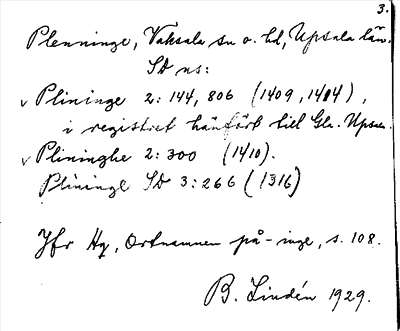 3.
Plenninge, Vaksala sn o. hd, Upsala län.
SD ns:
v Plininge 2: 144, 806 (1409, 1414),
i registret hänfört till Gla. Upsa.
v Plininghe 2: 300 (1410).
Plininge SD 3: 266 (1316)
Jfr Hq, Ortnamnen på -inge, s. 108.
B. Lindén 1929.